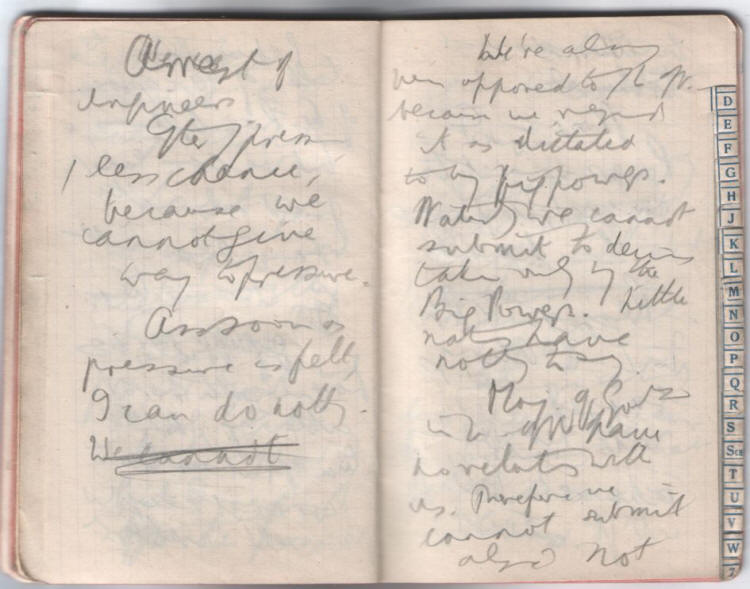 Arrest of
engineers
Gtr. press
/ less chance,
because we
cannot give
way to pressure.
As soon as
pressure is felt
I can do noth.
We cannot
We're alw
been opposed to
because we regard
it as dictated
to by big powers.
we cannot
submit to decns
taken only by the
Big Powers. Little
nats have
noth to say.
Maj. of Govts
in have
no relats with
us. Therefore we
cannot submit
also not
D
E
F
G
H
J
K
L
M
N
O
P
Q
R
S
Sch
T
U
V
W